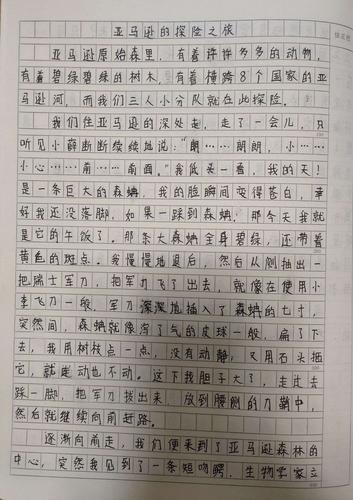 亚马逊的探险之旅
亚马逊原始森里，有着许许多多的动物，
有着碧绿碧绿的树木，有着横跨8个国家的亚
马逊河，而我们三人小分队就在此探险。
我们往亚马逊的深处走，走了一会儿，只
听见小薛断断续续地说：“朗……朗朗，小……
小心……前……前面。”我低头一看，我的天！
是一条巨大的森蚺，我的脸瞬间变得苍白，幸
好我还没落脚，如果一踩到森蚺。那今天我就
是它的午饭了。那条大森蚺全身碧绿，还带着
黄色的斑点。我慢慢地退后，然后从侧抽出一
把瑞士军刀，把军刀飞了出去，就像在使用小
李飞刀一般，军刀深深地插入了森蚺的七寸，
突然间，森蚺就像泄了气的皮球一般，扁了下
去，我用树枝点一点，没有动静，又用石头扔
它，就是动也不动。这下我胆子大了，走过去
踩一脚，把军刀拔出来，放到腰侧的刀鞘中，
然后就继续向前赶路。
逐渐向前走，我们便来到了亚马逊森林的
中心，突然我见到了一条短吻鳄，生物学家立